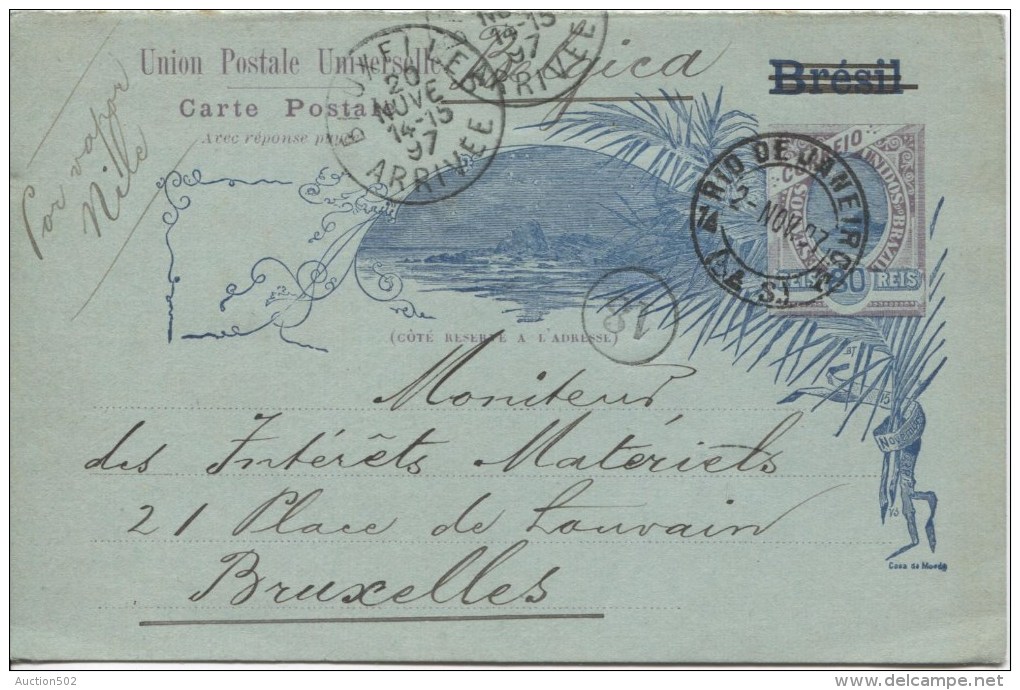 Union Postale Universelle
Belgica
Brésil
Carte Postale
Avec réponse payée
Por vapor
Nille
BRUXELLES
20
NOVE
14-15
97
ARRIVÉE
14-15
97
ARRIVÉE
RIO DE JANEIRO
2-NOV
UNIDOS DO BRAZIL
80 REIS
(CÔTÉ RESERVÉ A L'ADRESSE)
Moniteur
des Intérêts Matériels
21 Place de Louvain
Bruxelles
15
Novembro
Casa da Moeda
Auction502
delcampe.net